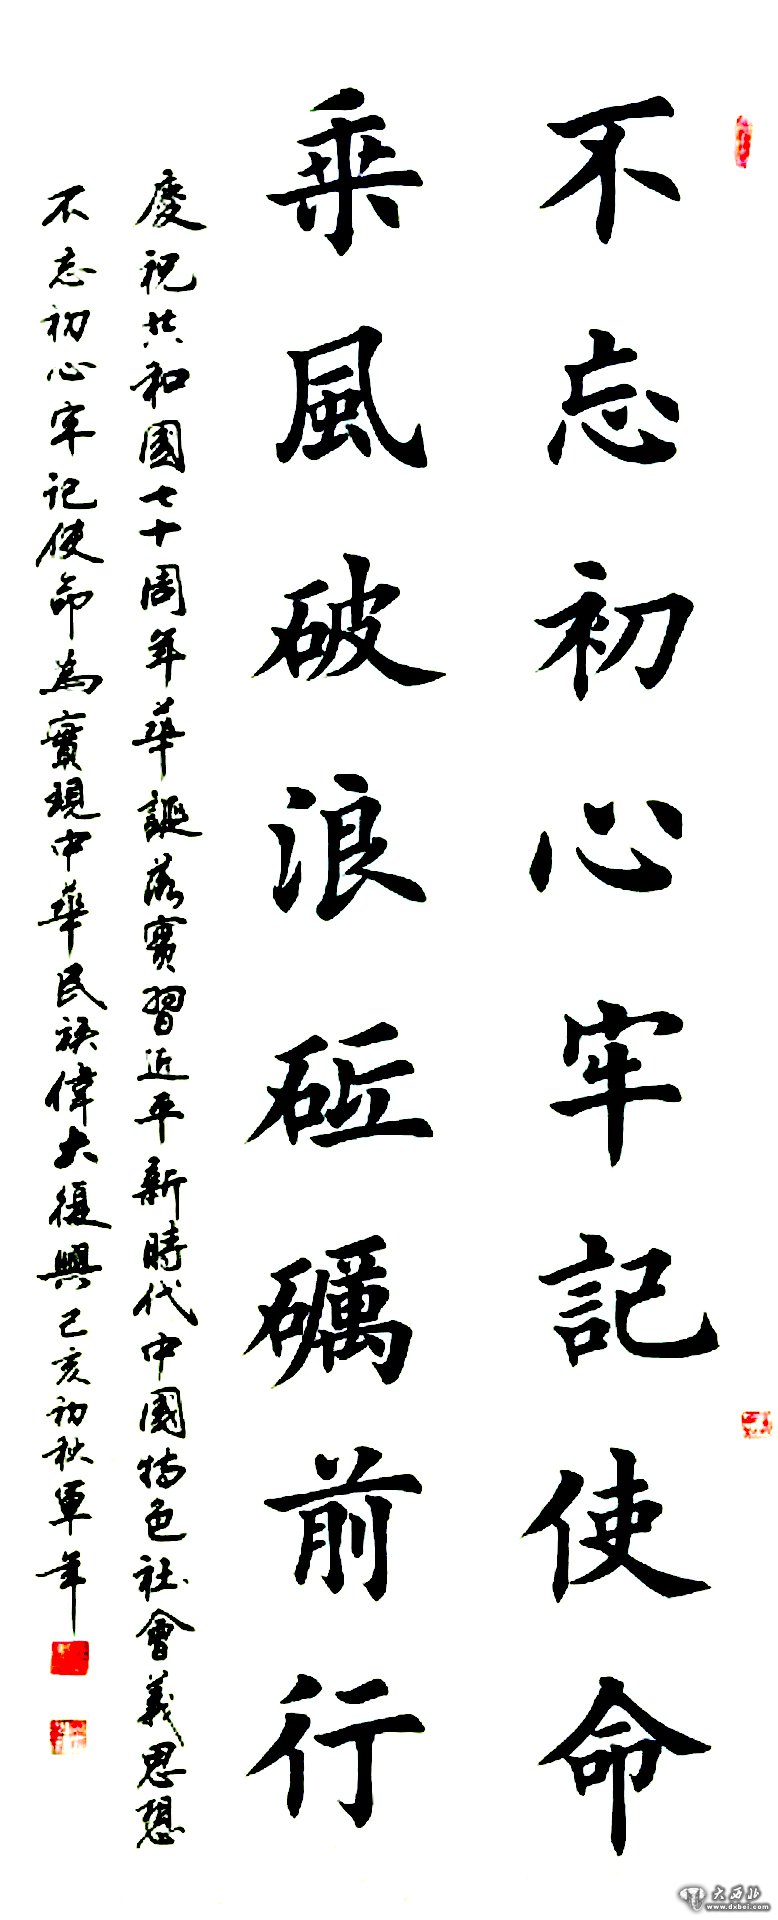 不忘初心牢記使命
乘風破浪砥礪前行
慶祝共和國七十周年華誕落實習近平新時代中國特色社會義思想
不忘初心牢記使命為實現中華民族偉大復興己亥初秋軍年
大西北
www.dxbei.com